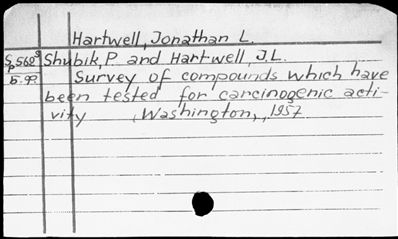 Hartwell, Jonathan L.
Shubik, P. and Hartwell, J.L.
Survey of compounds which have
been tested for carcinogenic acti-
vity Washington, 1957